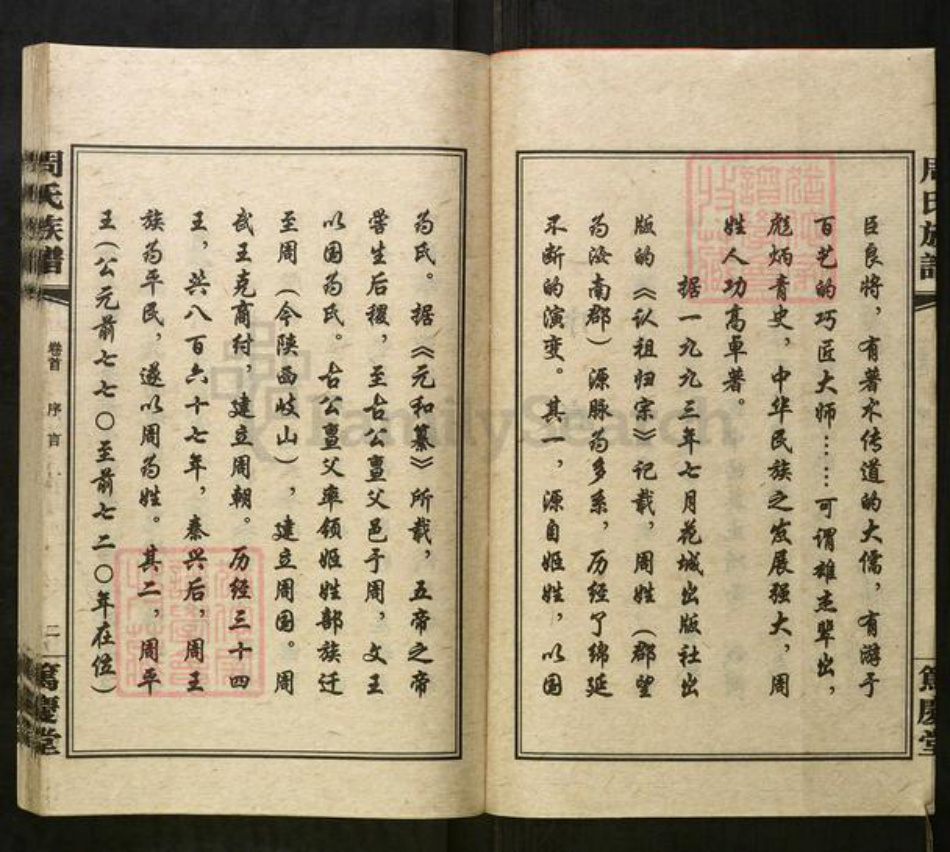 臣良将，有著水传道的大儒，有游于
百艺的巧匠大师……可谓雄杰辈出，
彪炳青史，中华民族之发展强大，周
姓人功高卓著。
据一九九三年七月花城出版社出
版的《认祖归宗》记载，周姓（郡望
为汝南郡）源脉为多系，历经了绵延
不断的演变。其一，源自姬姓，以国
周氏族谱
笃慶堂
为氏。据《元和纂》所载，五帝之帝
喾生后稷，至古公亶父邑于周，文王
以国为氏。古公亶父率领姬姓部族迁
至周（今陕西岐山），建立周国。周
武王克商纣，建立周朝。历经三十四
王，共八百六十七年，秦兴后，周王
族为平民，遂以周为姓。其二，周平
王（公元前七七〇至前七二〇年在位）
周氏族谱
卷首 序言
二
篤慶堂
FamilySearch